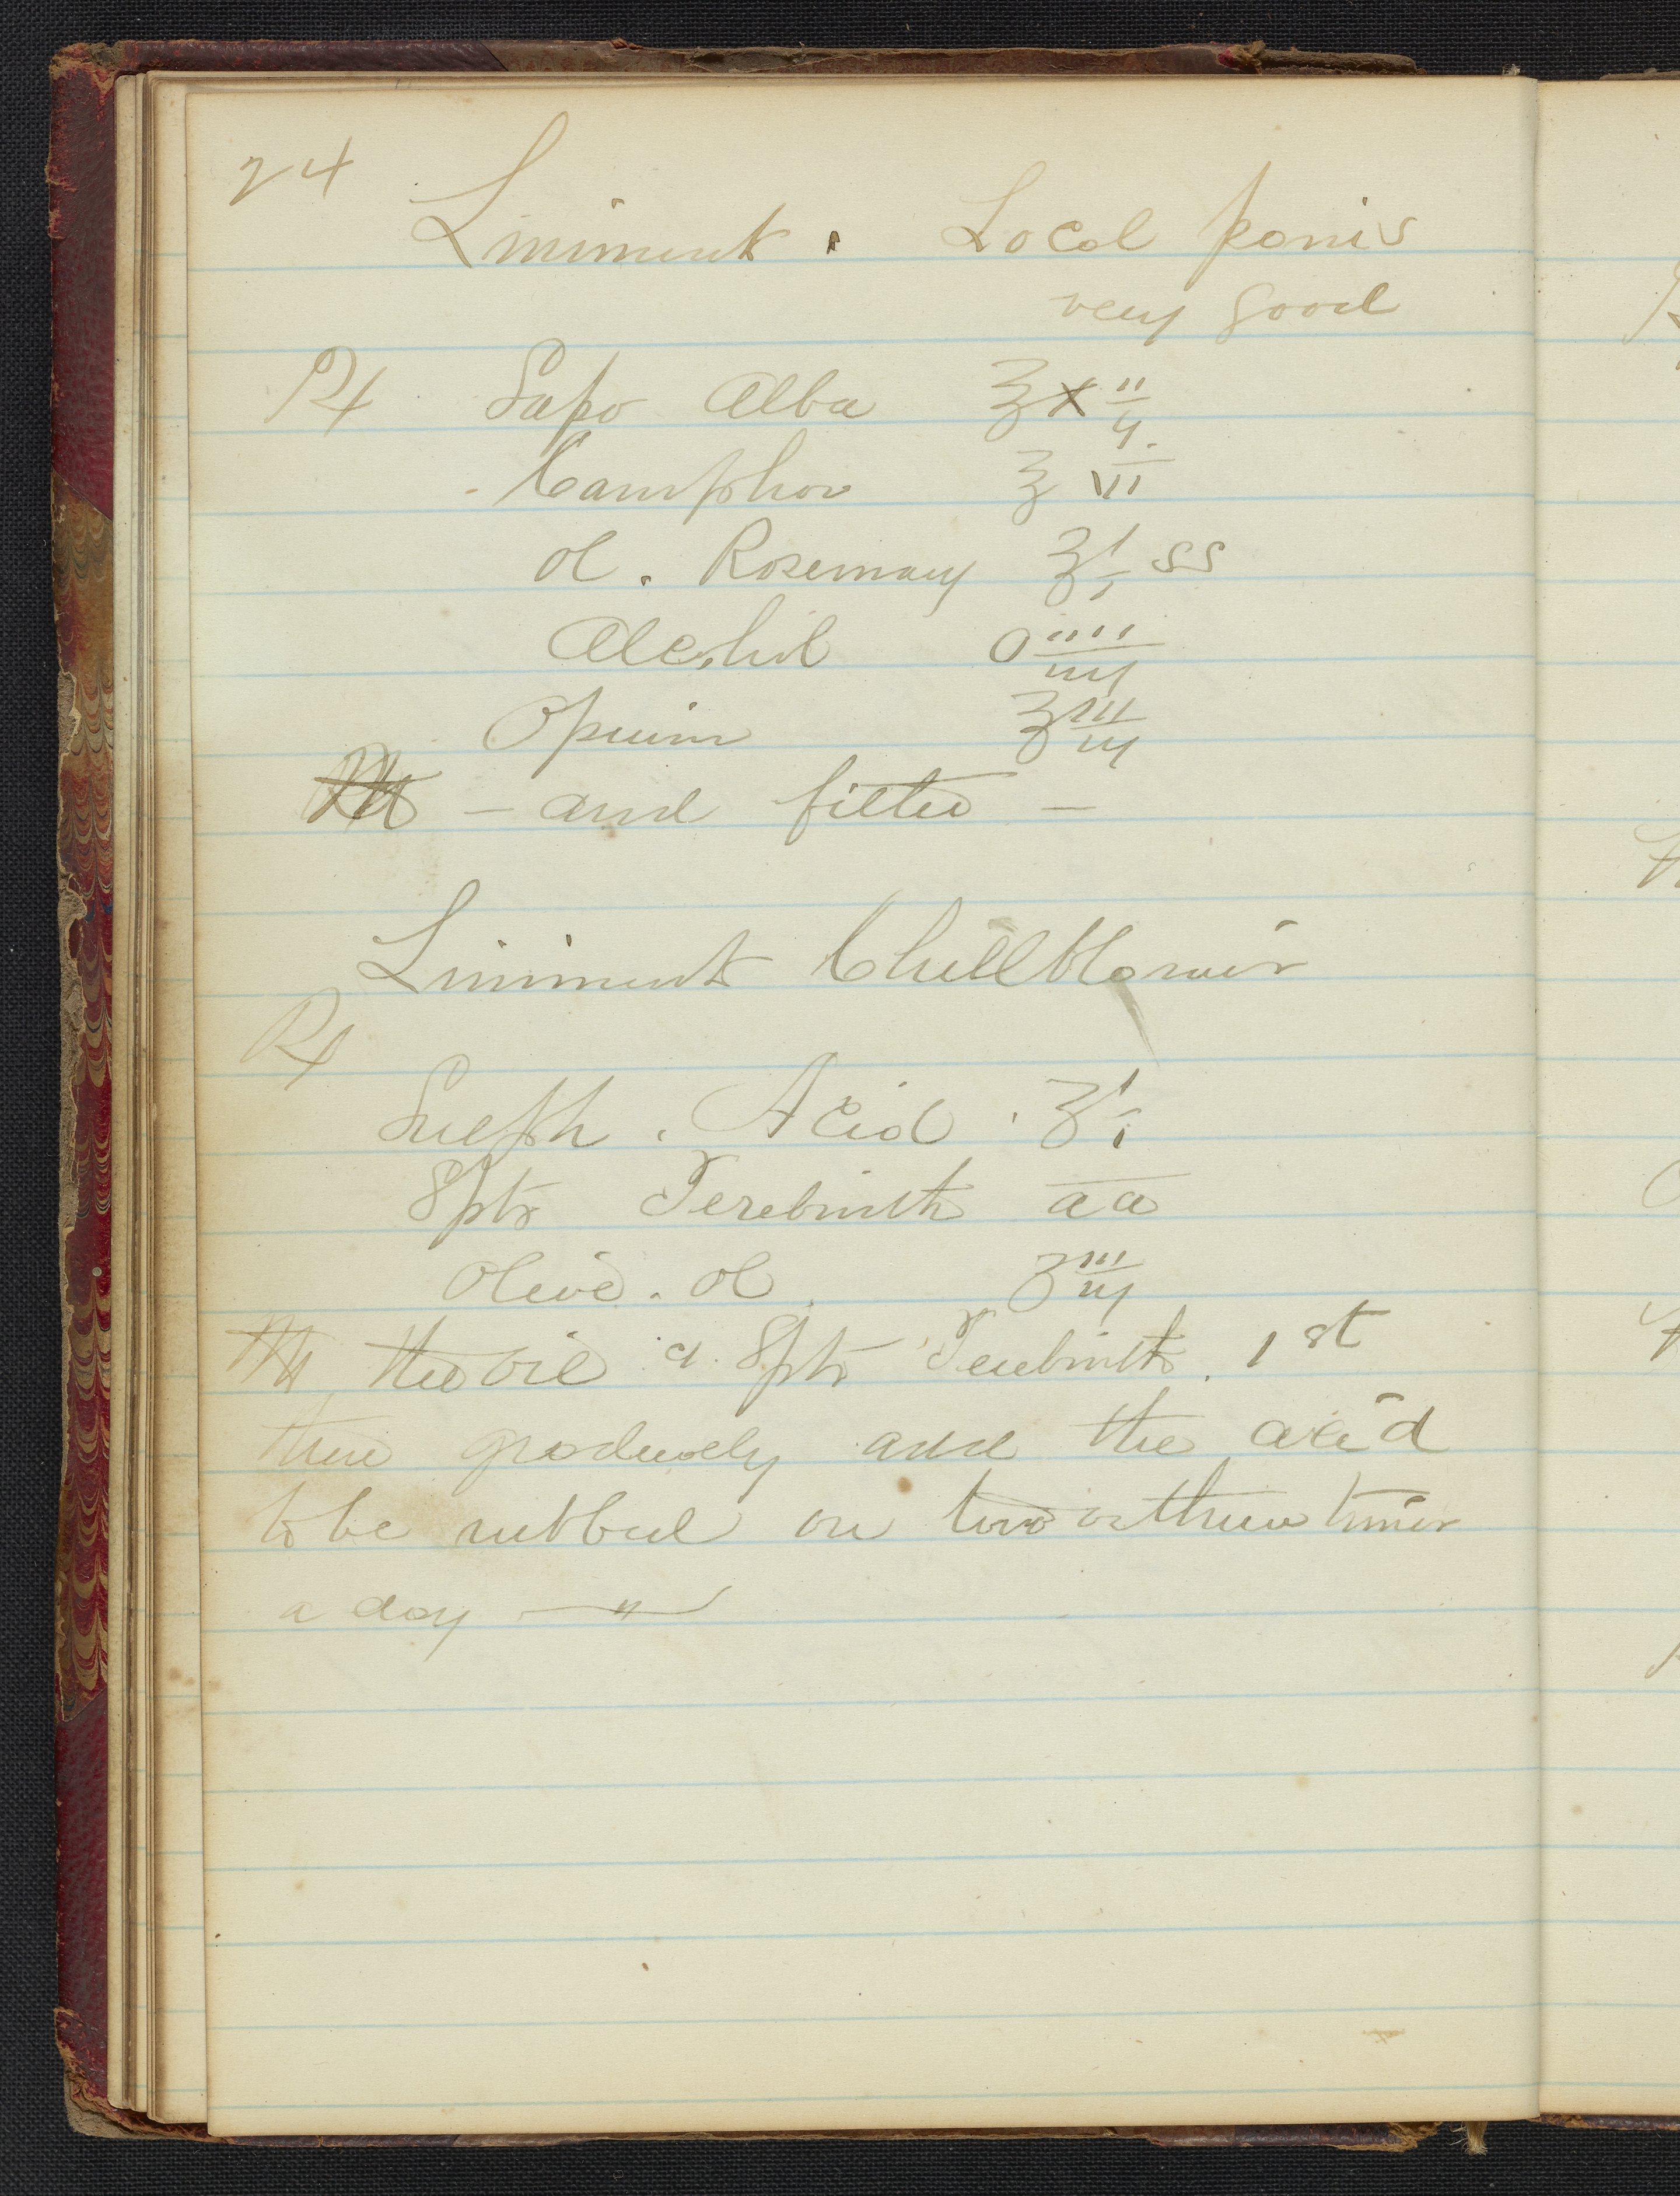 24
Liniment. Local pains
very good
Rx Sapo Alba ℥ xii
Camphor ℥ VI
Ol. Rosemary ℥ i ss
Alcohol O iiii
Opium ℥ iii
M — and filter —
Liniment Chillblains
Rx
Sulph. Acid. ʒ i
Spts Terebinth aa
Olive. Ol ʒ iii
M the oil & Spts Terebinth. 1st
then gradually add the acid
to be rubbed on two or three times
a day — " —